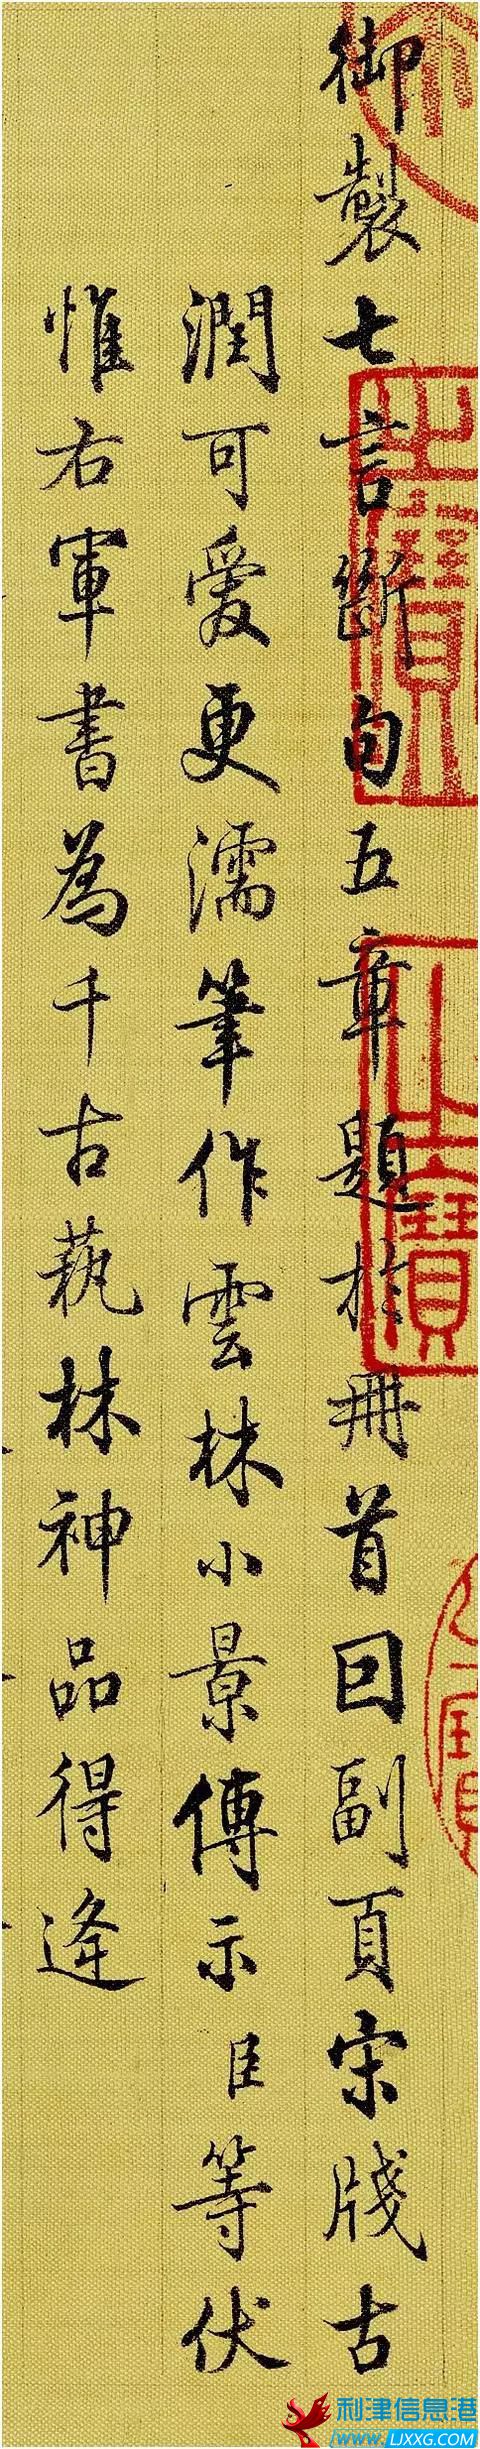 御製七言斷句五章題於冊首回副頁宋牋古
潤可愛更濡筆作雲林小景傳示臣等伏
惟右軍書為千古蓺林神品得逢
之寶
之寶
利津信息港
www.LJXXG.COM